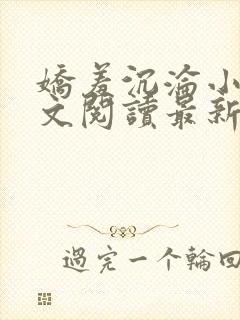 嬌羞沉淪小
文閱讀最新
過完一个輪回